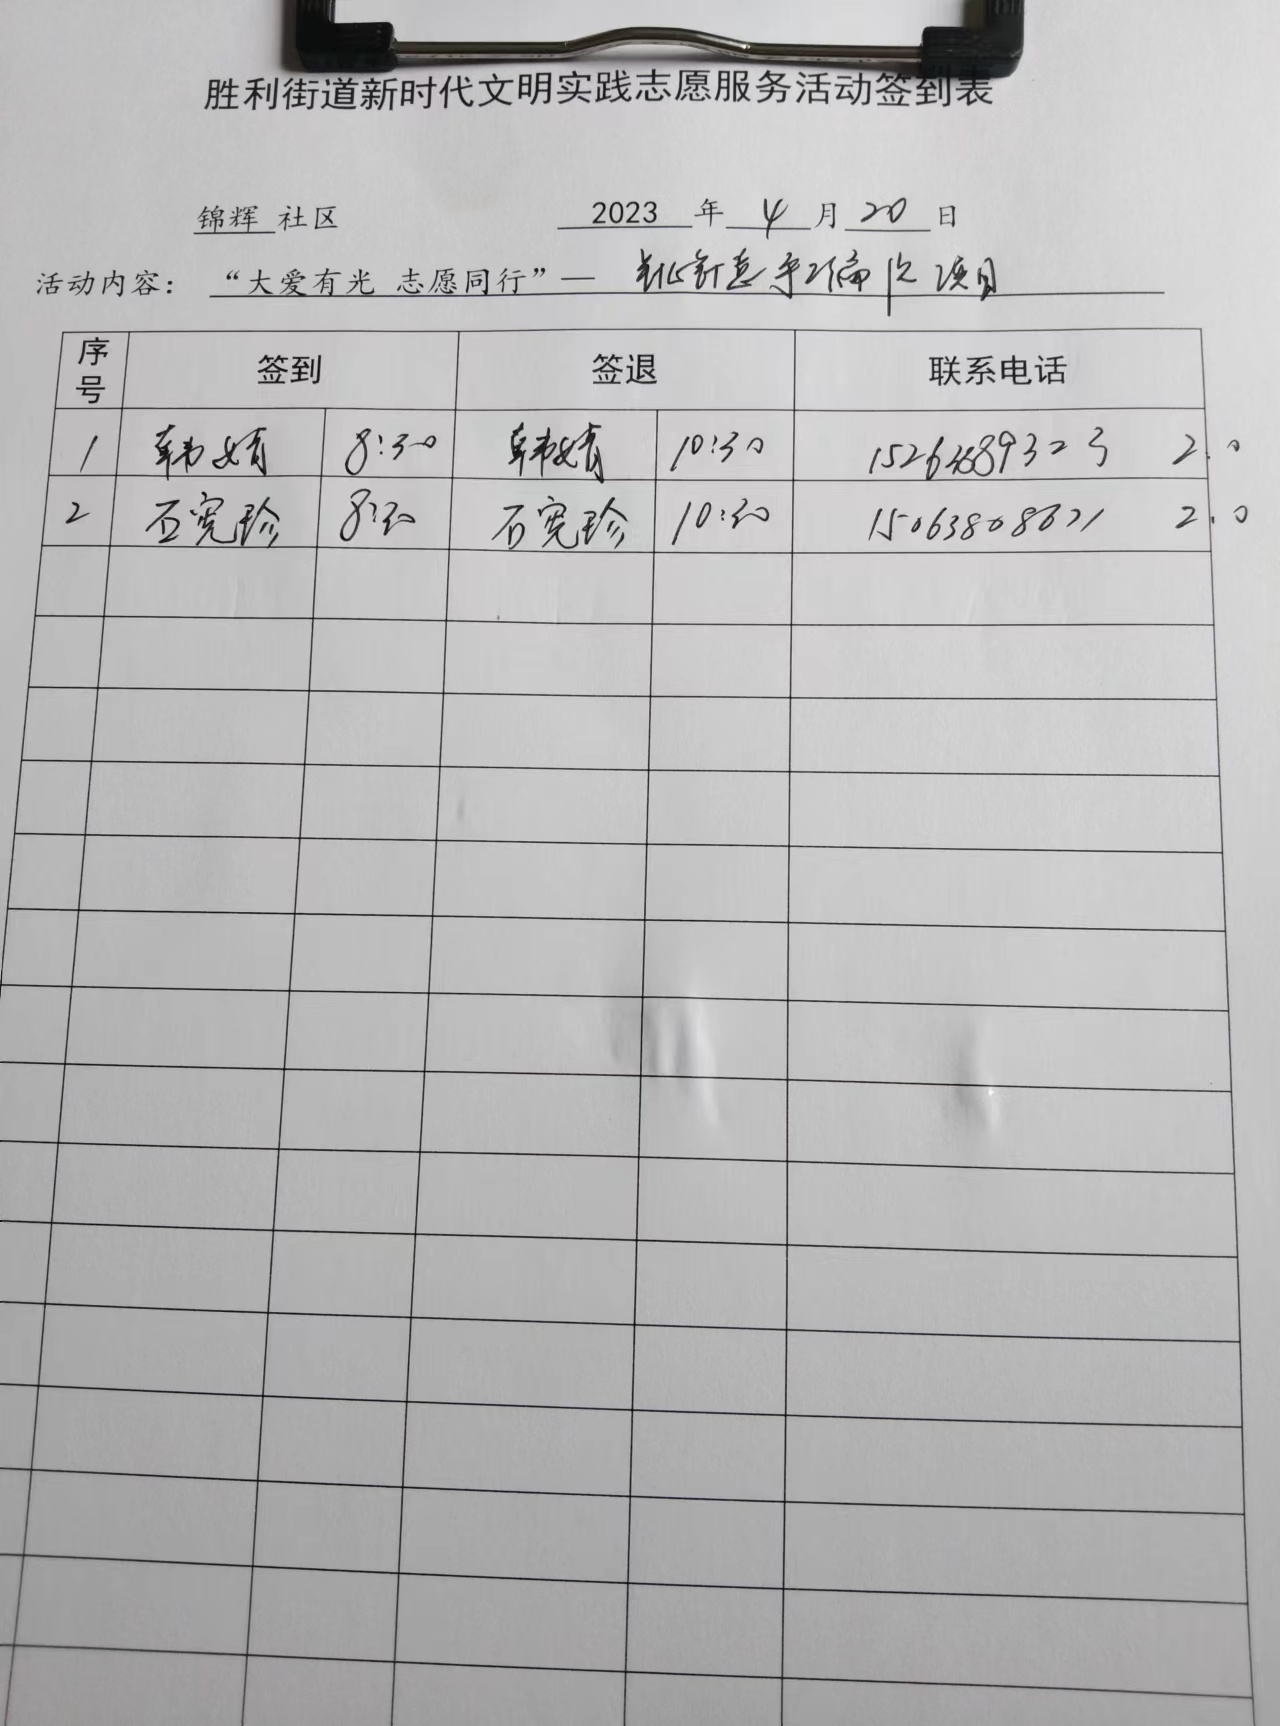 胜利街道新时代文明实践志愿服务活动签到表
锦辉 社区 2023 年 4 月 20 日
活动内容： “大爱有光 志愿同行”— 项目
序号 签到 签退 联系电话
1 韩婧 8:30 韩婧 10:30 2.0
2 石宪珍 8:30 石宪珍 10:30 15063808671 2.0